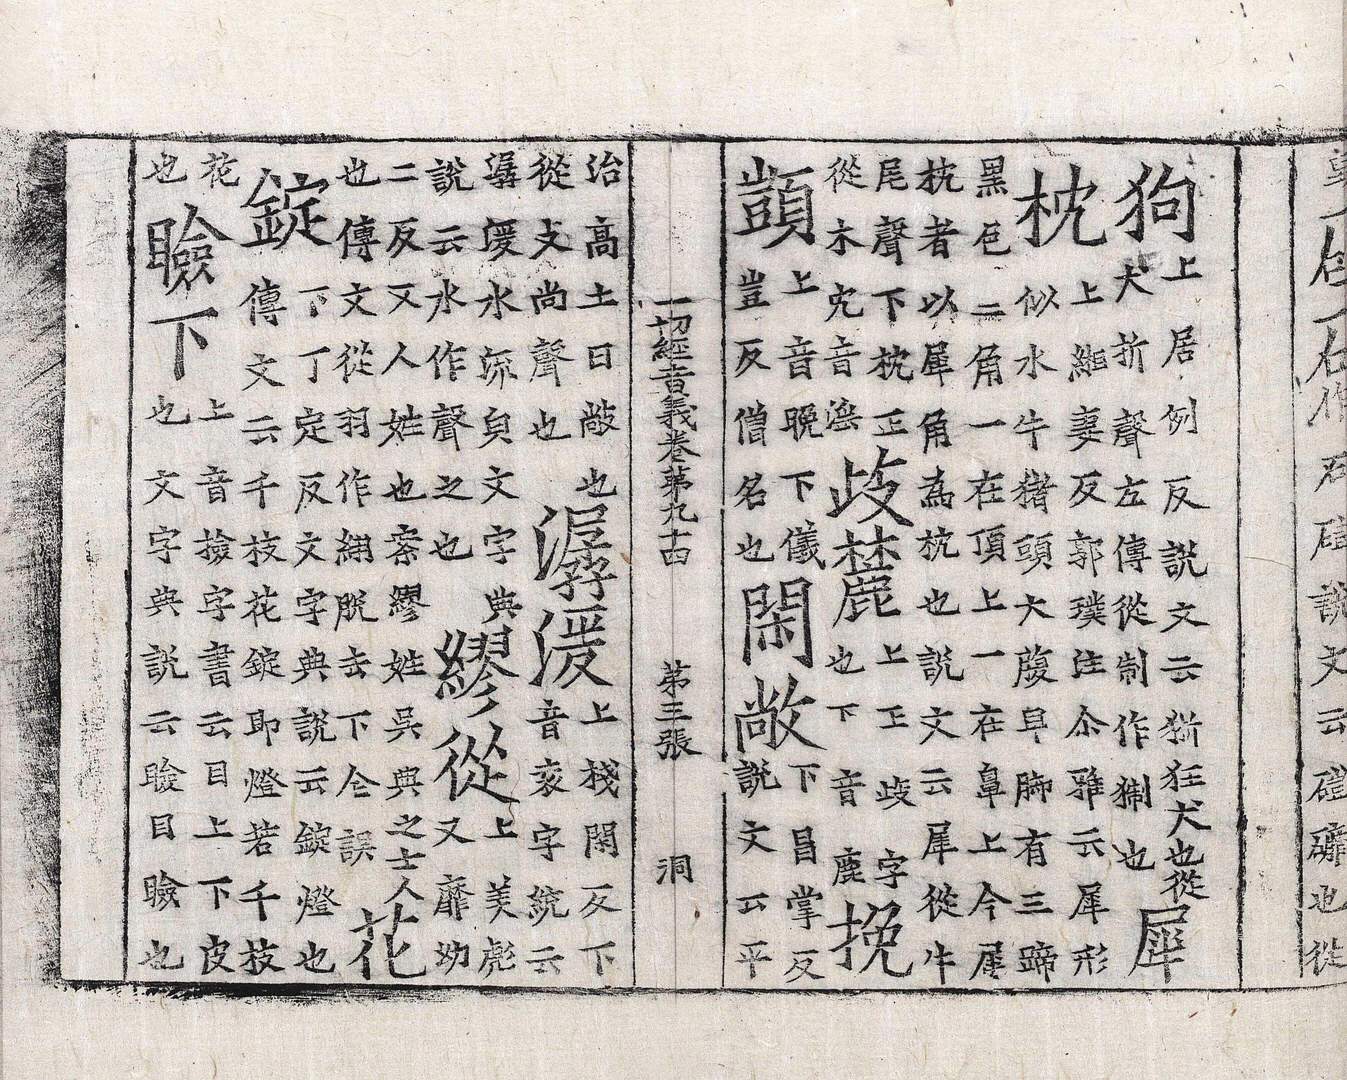 狗
上居例反說文云狾狂犬也從
犬折聲左傳從制作猘也
犀
枕
上細妻反郭璞注尒雅云犀形
似水牛猪頭大腹卑脚有三蹄
黑色二角一在頂上一在鼻上今犀
枕者以犀角為枕也說文云犀從牛
尾聲下枕正
從木冘音淫
歧麓
上正歧字
也下音鹿
挽
顗
上音晚下儀
豈反僧名也
閑敞
下昌掌反
說文云平
一切經音義卷第九十四 第三張 洞
治高土曰敞也
從攴尚聲也
潺湲
上棧閑反下
音袁字統云
潺湲水流皃文字典
說云水作聲之也
繆從
上美彪
又靡幼
二反又人姓也案繆姓吳興之士人
也傳文從羽作翗脫去下仝誤
花
錠
下丁定反文字典說云錠燈也
傳文云千枝花錠即燈若千枝
花
也
瞼下
上音撿字書云目上下皮
也文字典說云瞼目瞼也